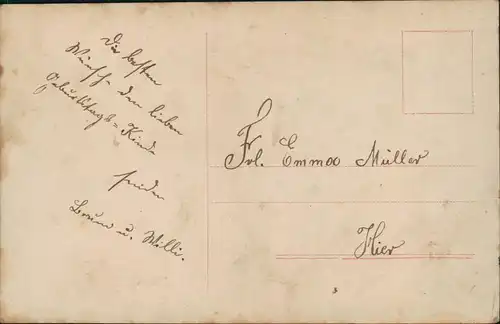 Die besten
Wünsche dem lieben
Geburtstags-Kinde
senden
u. Willi.
Frl. Emma Müller
Hier